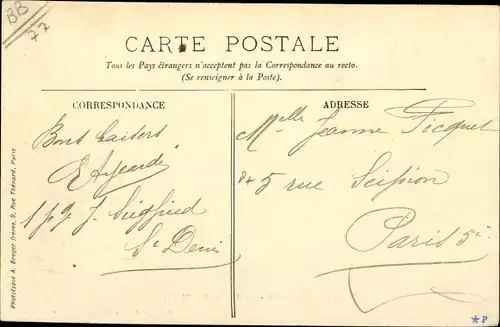 BB
77
CARTE POSTALE
Tous les Pays étrangers n'acceptent pas la Correspondance au recto.
(Se renseigner à la Poste).
CORRESPONDANCE
Bons baisers
J. Siegfried
St Denis
ADRESSE
Melle Jeanne Ficquet
5 rue Scipion
Paris 5e
Phototypie A. Breger frères, 9, Rue Thénard, Paris
*P